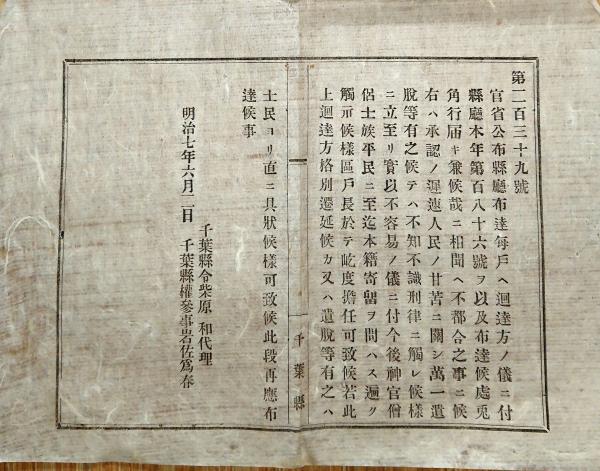 第二百三十九號
官省公布縣廳布達每戶ヘ迴達方ノ儀ニ付
縣廳本年第百八十六號ヲ以及布達候處兎
角行屆キ兼候哉ニ相聞ヘ不都合之事ニ候
右ハ承認ノ遲速人民ノ甘苦ニ關シ萬一遺
脫等有之候テハ不知不識刑律ニ觸レ候樣
ニ立至リ實以不容易ノ儀ニ付今後神官僧
侶士族平民ニ至迄本籍寄留ヲ問ハス遍ク
觸示候樣區戶長於テ屹度擔任可致候若此
上迴達方格別遷延候カ又ハ遺脫等有之ハ
千葉縣
士民ヨリ直ニ具狀候樣可致候此段再應布
達候事
明治七年六月二日
千葉縣令柴原和代理
千葉縣權參事岩佐爲春